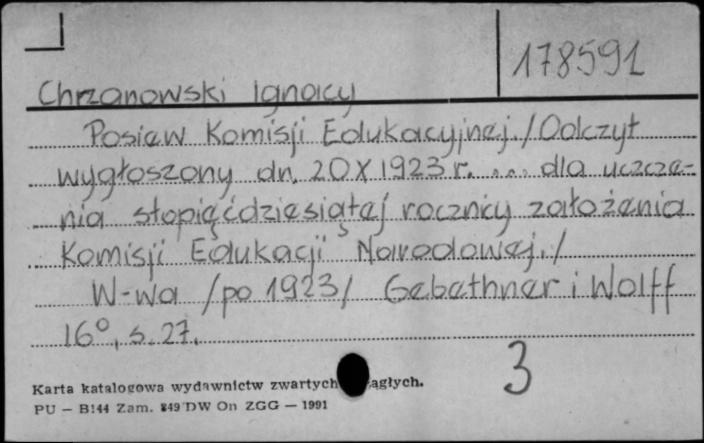 178591
Chrzanowski Ignacy
Posiew Komisji Edukacyjnej./Odczyt
wygłoszony dn. 20 X 1923 r. ... dla uczcze-
nia stopięćdziesiątej rocznicy założenia
Komisji Edukacji Narodowej./
W-wa /po 1923/ Gebethner i Wolff
16°, s. 27.
3
Karta katalogowa wydawnictw zwartych ągłych.
PU — B144 Zam. 849 DW On ZGG — 1991